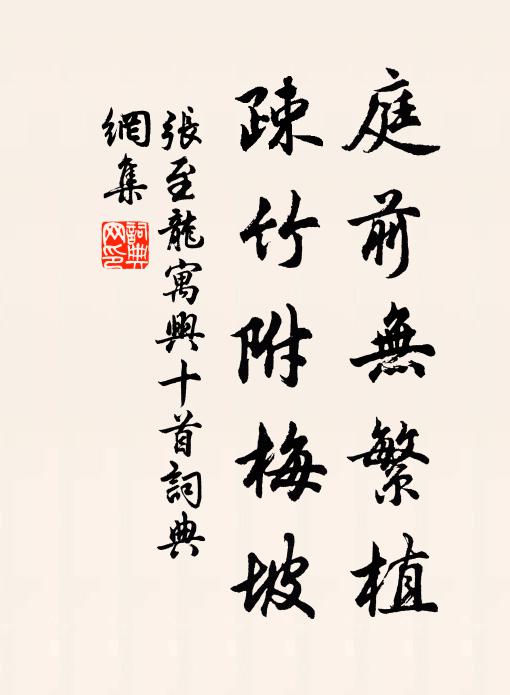 庭前無繁植
疎竹附梅坡
張至龍寓興十首詞典
網集
詞典
网印